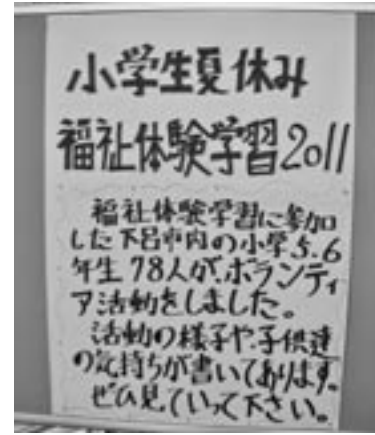 小学生夏休み
福祉体験学習2011
福祉体験学習に参加
した下呂市内の小学5.6
年生78人が、ボランティ
ア活動をしました。
活動の様子や、子供達
の気持ちが書いてあります。
ぜひ見ていって下さい。